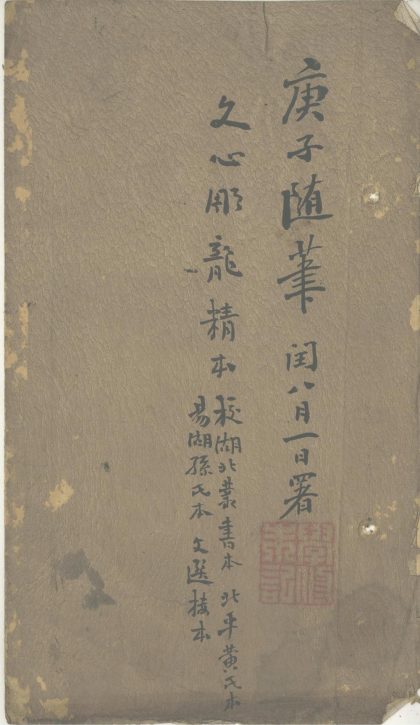 庚子随筆 閏八月一日署
文心彫龍 精本 校湖北叢書本 北平黃氏本
易湖孫氏本 文選挍本